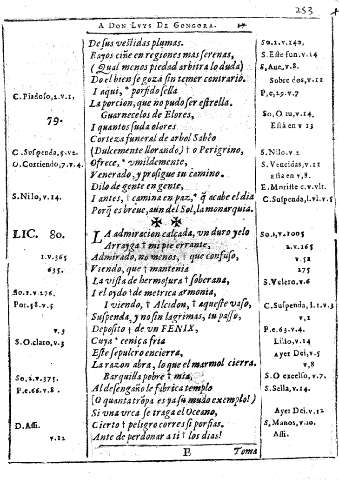 253
A DON LVYS DE GONGORA.
De sus vestidas plumas. So.2.v.142.
Rayos ciñe en regiones mas serenas, S. Este fun.v.14
(Qual menos piedad arbitra lo duda) S. Aue, v.8.
Do el bien se goza sin temer contrario. Sobre dos, v.12
C. Piadoso, 2.v.1. I aqui, * porfido sella P,c,29.v.7
La porcion, que no pudo ser estrella.
79. Guarnecelos de Flores, So, O tu, v.14.
I quantos suda olores Està en v 13
Corteza funeral de arbol Sabèo
C. Suspenda, 5.v2. (Dulcemente llorando) † o Perigrino, S. Nilo. v 2
O. Corriendo, 7.v.4. Ofrece, * vmildemente, S. Vencidas, v.12
Venerado, y prosigue su camino. està en v,8.
Dilo de gente en gente, E. Moriste c.v.vlt.
S. Nilo, v.14. I antes, † camina en paz, * q̃ acabe el dia C. Suspenda, 1.v1.v.5
Porq̃ es breue, aun del Sol, la monarquia.
LIC. 80. LA admiracion calçada, vn duro yelo So.1,v.1005
Arrayga † mi pie errante, 2.v.165
1.v.365 Admirado, no menos, † que confuso, v.52
635. Viendo, que † mantenia 275
La vista de hermosura † soberana, S. Velero, v.6
So.2.v.176. I el oydo † de metrica armonia,
Pot.58.v.5 I viendo, † Alcidon, † aqueste vaso, C. Suspenda, 1.v.3.
Suspenda, y no sin lagrimas, tu passo, v.1
v.5 Deposito † de vn FENIX, P.e.63.v.4.
S. O claro, v.3 Cuya * ceniça fria Lilio, v.14
Este sepulcro encierra, Ayer Dei,v.5
La razon abra, lo que el marmol cierra. v,8
So.2.v.375. Barquilla pobre † mia, S. O excelso, v.7.
P.e.66.v.8. Al desengaño le fabrica templo S. Sella, v.14.
(O quanta tròpa es ya su mudo exemplo!)
Si vna vrca se traga el Oceano, Ayer Dei. v.12
D. Assi. Cierto † peligro corres si porfias. S, Manos, v.10.
v.12 Ante de perdonar a ti † los dias! Assi.
E Toma